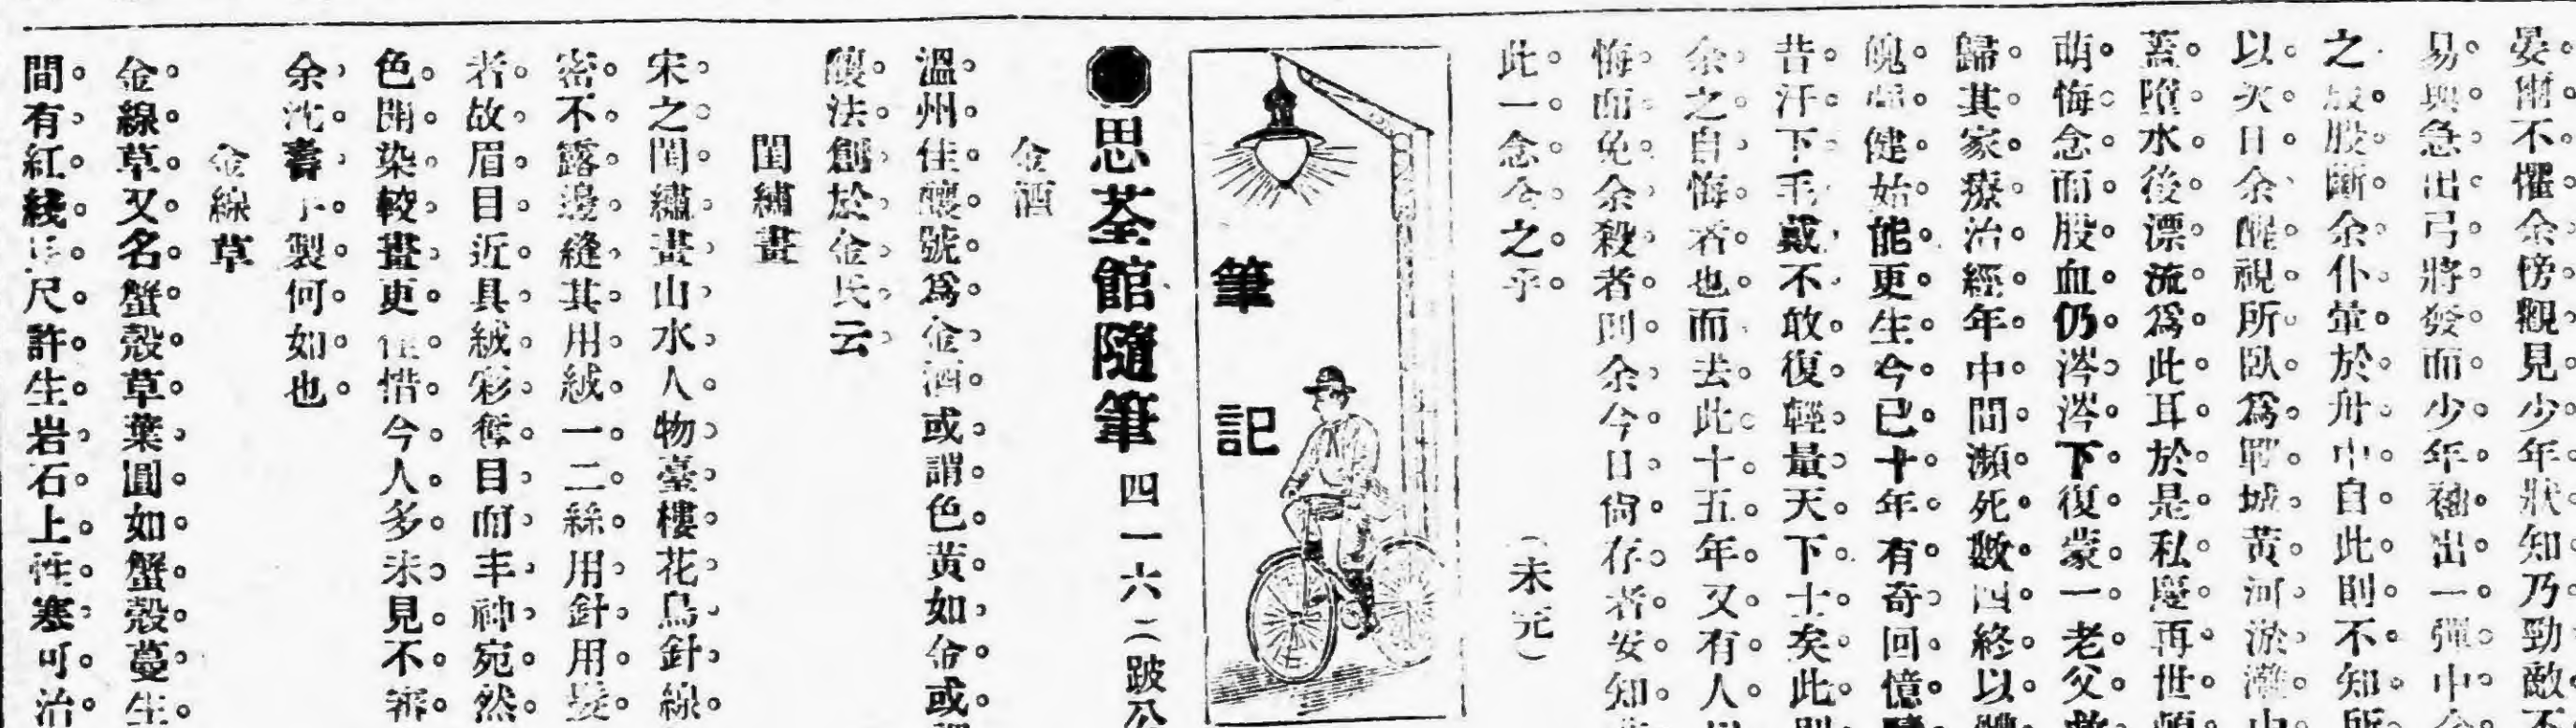 晏爾不懼余傍觀見少年狀知乃勁敵不
易與急出弓將發而少年袖出一彈中余
之股股斷余仆暈於舟中自此則不知所
以次日余醒視所臥爲鄆城黃河淤灘中
蓋墮水後漂流爲此耳於是私慶再世頓
萌悔念而股血仍涔涔下復蒙一老父救
歸其家療治經年中間瀕死數四終以體
魄健始能更生今已十年有奇回憶
昔汗下毛戴不敢復輕量天下士矣此則
余之自悔者也而去此十五年又有人以
悔而免余殺者則余今日尙存者安知
此一念今之乎
(未完)
筆記
思荃館隨筆 四一六二 跛公
金酒
溫州佳釀號爲金酒或謂色黃如金或謂
釀法創於金氏云
閨繡畫
宋之閨繡畫山水人物臺樓花鳥針線
密不露邊縫其用絨一二絲用針用髮
者故眉目近具絨彩奪目而丰神宛然
色開染較畫更佳惜今人多未見不審
余沈壽下製何如也
金線草
金線草又名蟹殼草葉圓如蟹殼蔓生
間有紅綫長尺許生岩石上性寒可治